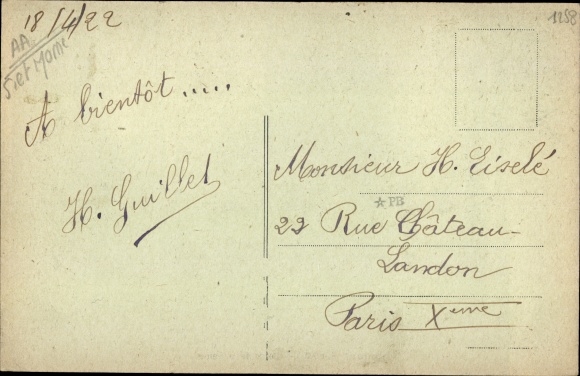 18/4/22
AA
S et Marne
1258
A bientôt.....
H. Guillet
Monsieur H. Eiselé
PB
22 Rue Château-
Landon
Paris Xeme